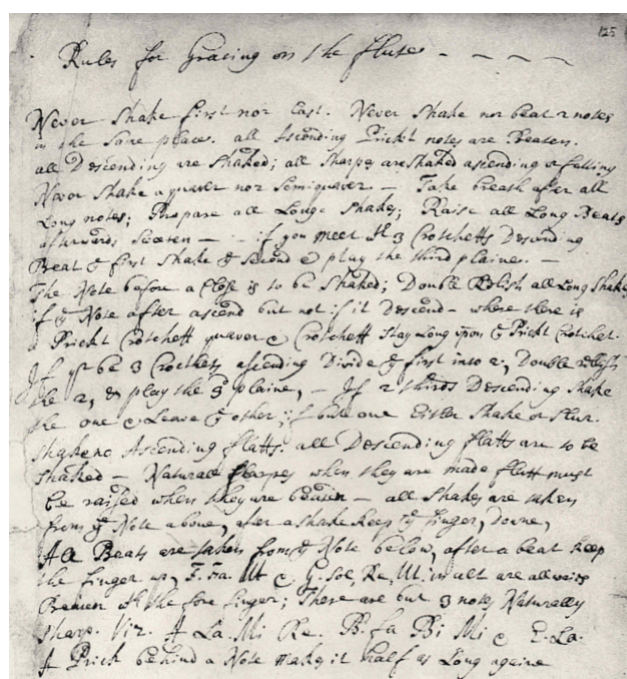 125
Rules for Gracing on the flute
Never Shake first nor last. Never Shake nor beat 2 notes
in the same place. all Ascending Prickt notes are Beaten.
all Descending are Shaked; all Sharps are Shaked ascending or falling
Never Shake a quaver nor Semiquaver. — Take breath after all
Long notes; Prepare all Longe Shakes; Raise all Long Beats
afterwards Sweeten — if you meet wth 3 Crotchetts Descending
Beat ye first Shake ye Second & play the third plaine. —
The Note before a Close is to be Shaked; Double Relish all Long Shakes
if ye Note after ascend but not if it Descend — where there is
a Prickt Crotchett quaver & Crotchett Stay Long upon ye Prickt Crotchet.
If yr be 3 Crotchets ascending Divide ye first into 2; Double relish
the 2, & play the 3 plaine, — If 2 thirds Descending Shake
the one & Leave ye other; if but one Either Shake or Slur.
Shake no Ascending flatts. all Descending flatts are to be
Shaked — Naturall Sharpes when they are made flatt must
be raised when they are beaten — all Shakes are taken
from ye Note above, after a shake keep ye finger, downe,
All Beats are taken from ye Note below, after a beat keep
the finger up, F. fa. Ut & G. Sol, Re, Ut. in alt are allwaies
Beaten wth the fore finger; There are but 3 notes, Naturally
Sharp. Viz. A La. Mi Re. B. fa Bi Mi & E. La.
A Prick behind a Note makes it half as Long againe